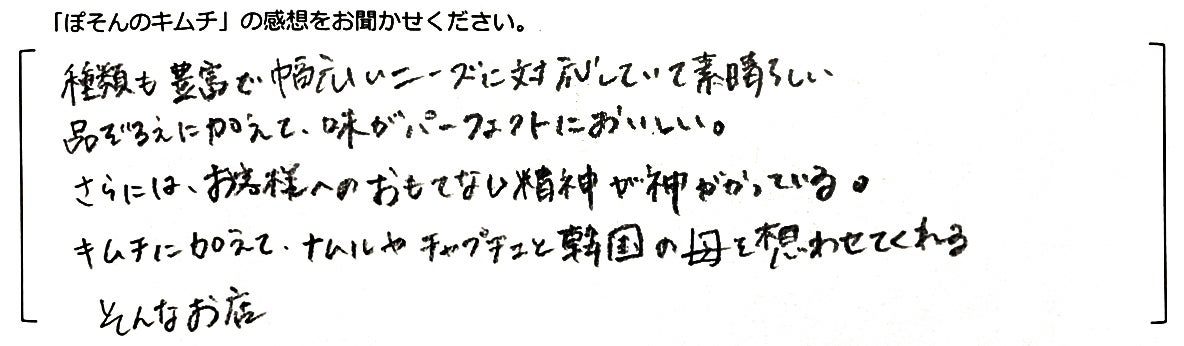 「ぽそんのキムチ」の感想をお聞かせください。
種類も豊富で幅広いニーズに対応していて素晴らしい
品ぞろえに加えて、味がパーフェクトにおいしい。
さらには、お客様へのおもてなし精神が神がかっている。
キムチに加えて、ナムルやチャプチェと韓国の母を想わせてくれる
そんなお店